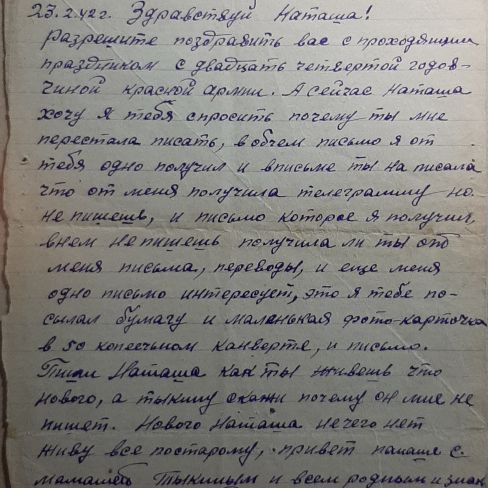 23.2.42г. Здравствуй Наташа!
Разрешите поздравить вас с проходящим
праздником с двадцать четвертой годов-
чиной красной армии. А сейчас Наташа
хочу я тебя спросить почему ты мне
перестала писать, в обчем письмо я от
тебя одно получил и вписьме ты на писала
что от меня получила телеграмму но
не пишешь, и письмо которое я получил,
внем не пишешь получила ли ты от
меня письма, переводы, и еще меня
одно письмо интересует, это я тебе по-
сылал бумагу и маленькая фото-карточка
в 50 копеечьном канверте, и письмо.
Пиши Наташа как ты живешь что
нового, а скажи почему он мне не
пишет. Нового Наташа нечего нет
живу все постарому, привет папаше с.
мамашей и всем родным и знак